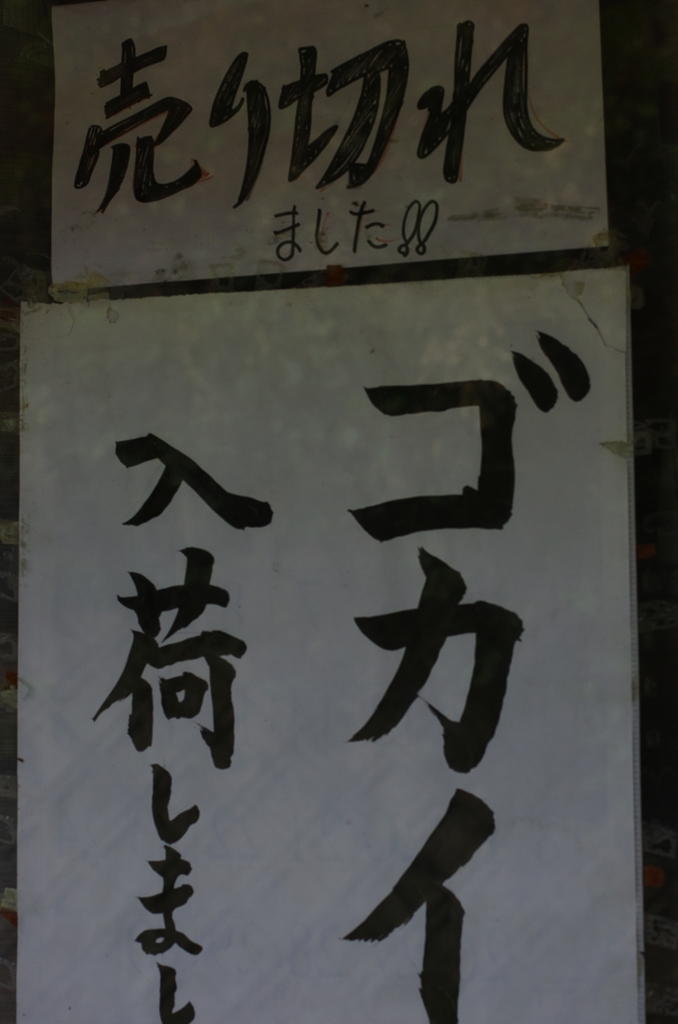 売り切れ
ました!!
ゴカイ
入荷しまし